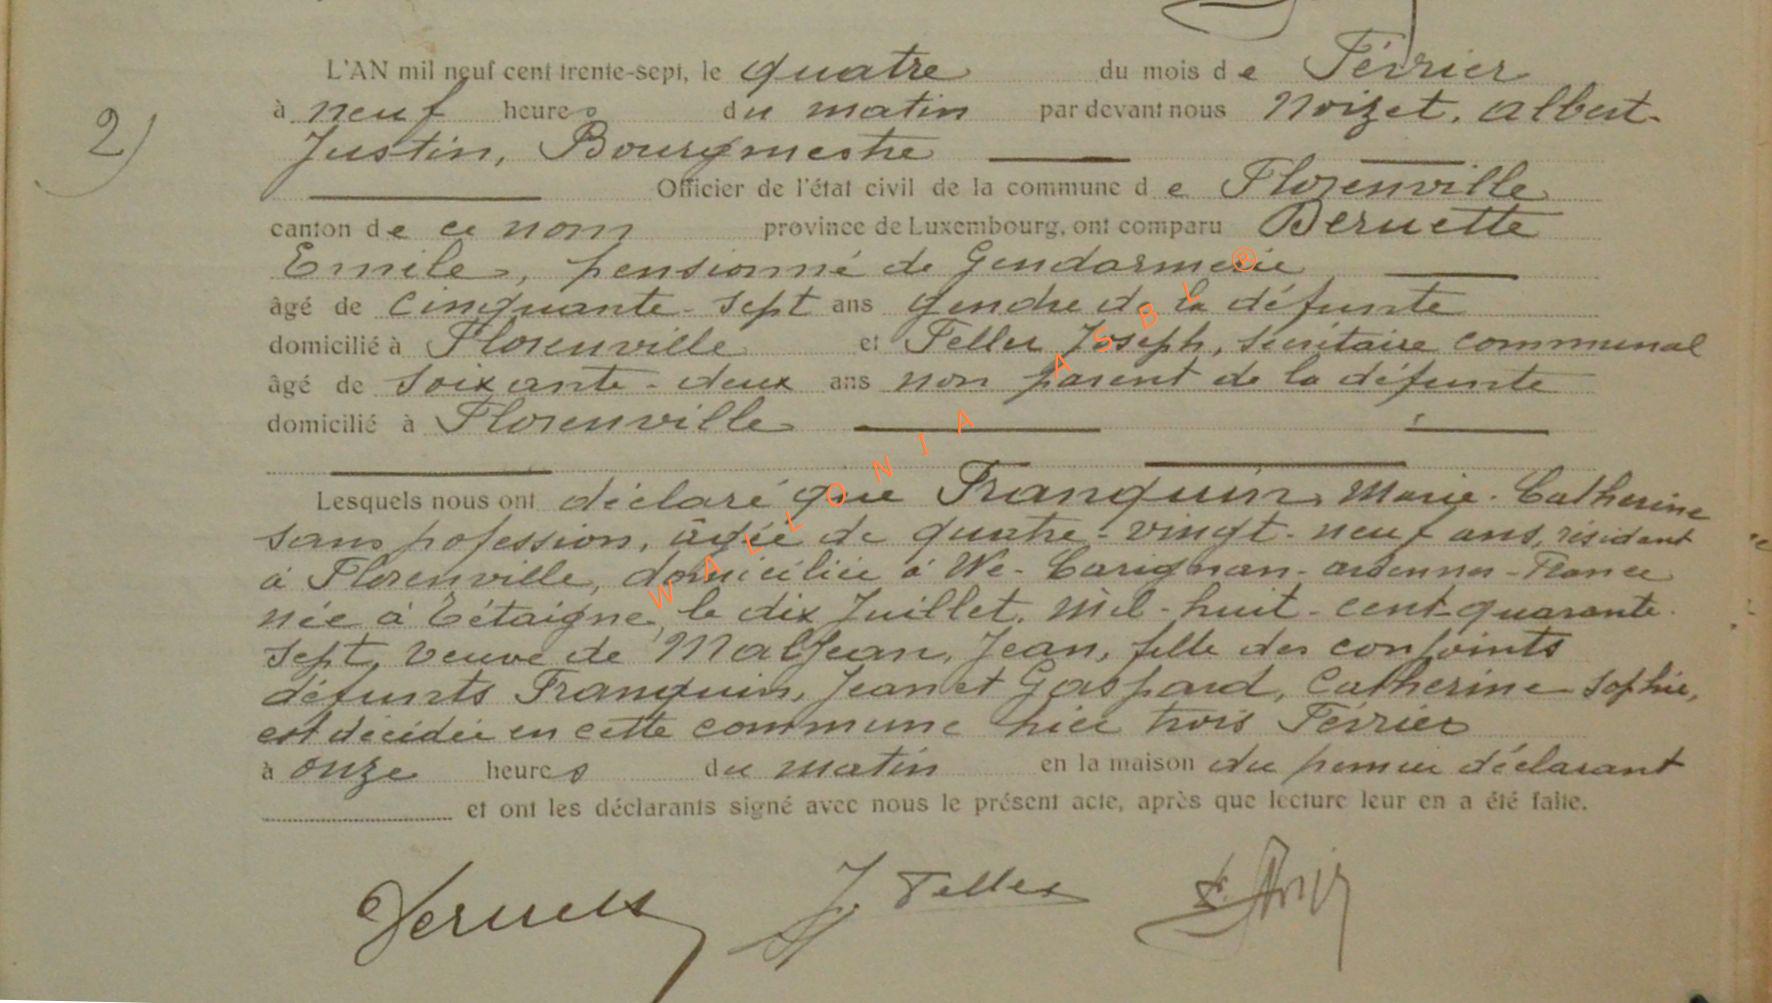 L'AN mil neuf cent trente-sept, le quatre du mois de Février
2) à neuf heures du matin par devant nous Noizet, Albert-
Justin, Bourgmestre
Officier de l'état civil de la commune de Florenville
canton de ce nom province de Luxembourg, ont comparu Deruette
Emile, pensionné de Gendarmerie
âgé de cinquante-sept ans gendre de la défunte
domicilié à Florenville et Feller Joseph, secrétaire communal
âgé de soixante-deux ans non parent de la défunte
domicilié à Florenville
Lesquels nous ont déclaré que Franquin, Marie-Catherine
sans pofession, âgée de quatre-vingt-neuf ans, résidant
à Florenville, domiciliée à We-Carignan-ardennes-France
née à Tétaigne, le dix Juillet, mil-huit-cent-quarante-
sept, veuve de MalJean, Jean, fille des conjoints
défunts Franquin, Jean et Gaspard, Catherine Sophie,
est décédée en cette commune hier trois Février
à onze heures du matin en la maison du premier déclarant
et ont les déclarants signé avec nous le présent acte, après que lecture leur en a été faite.
J. Feller
WALLONIA ASBL ®